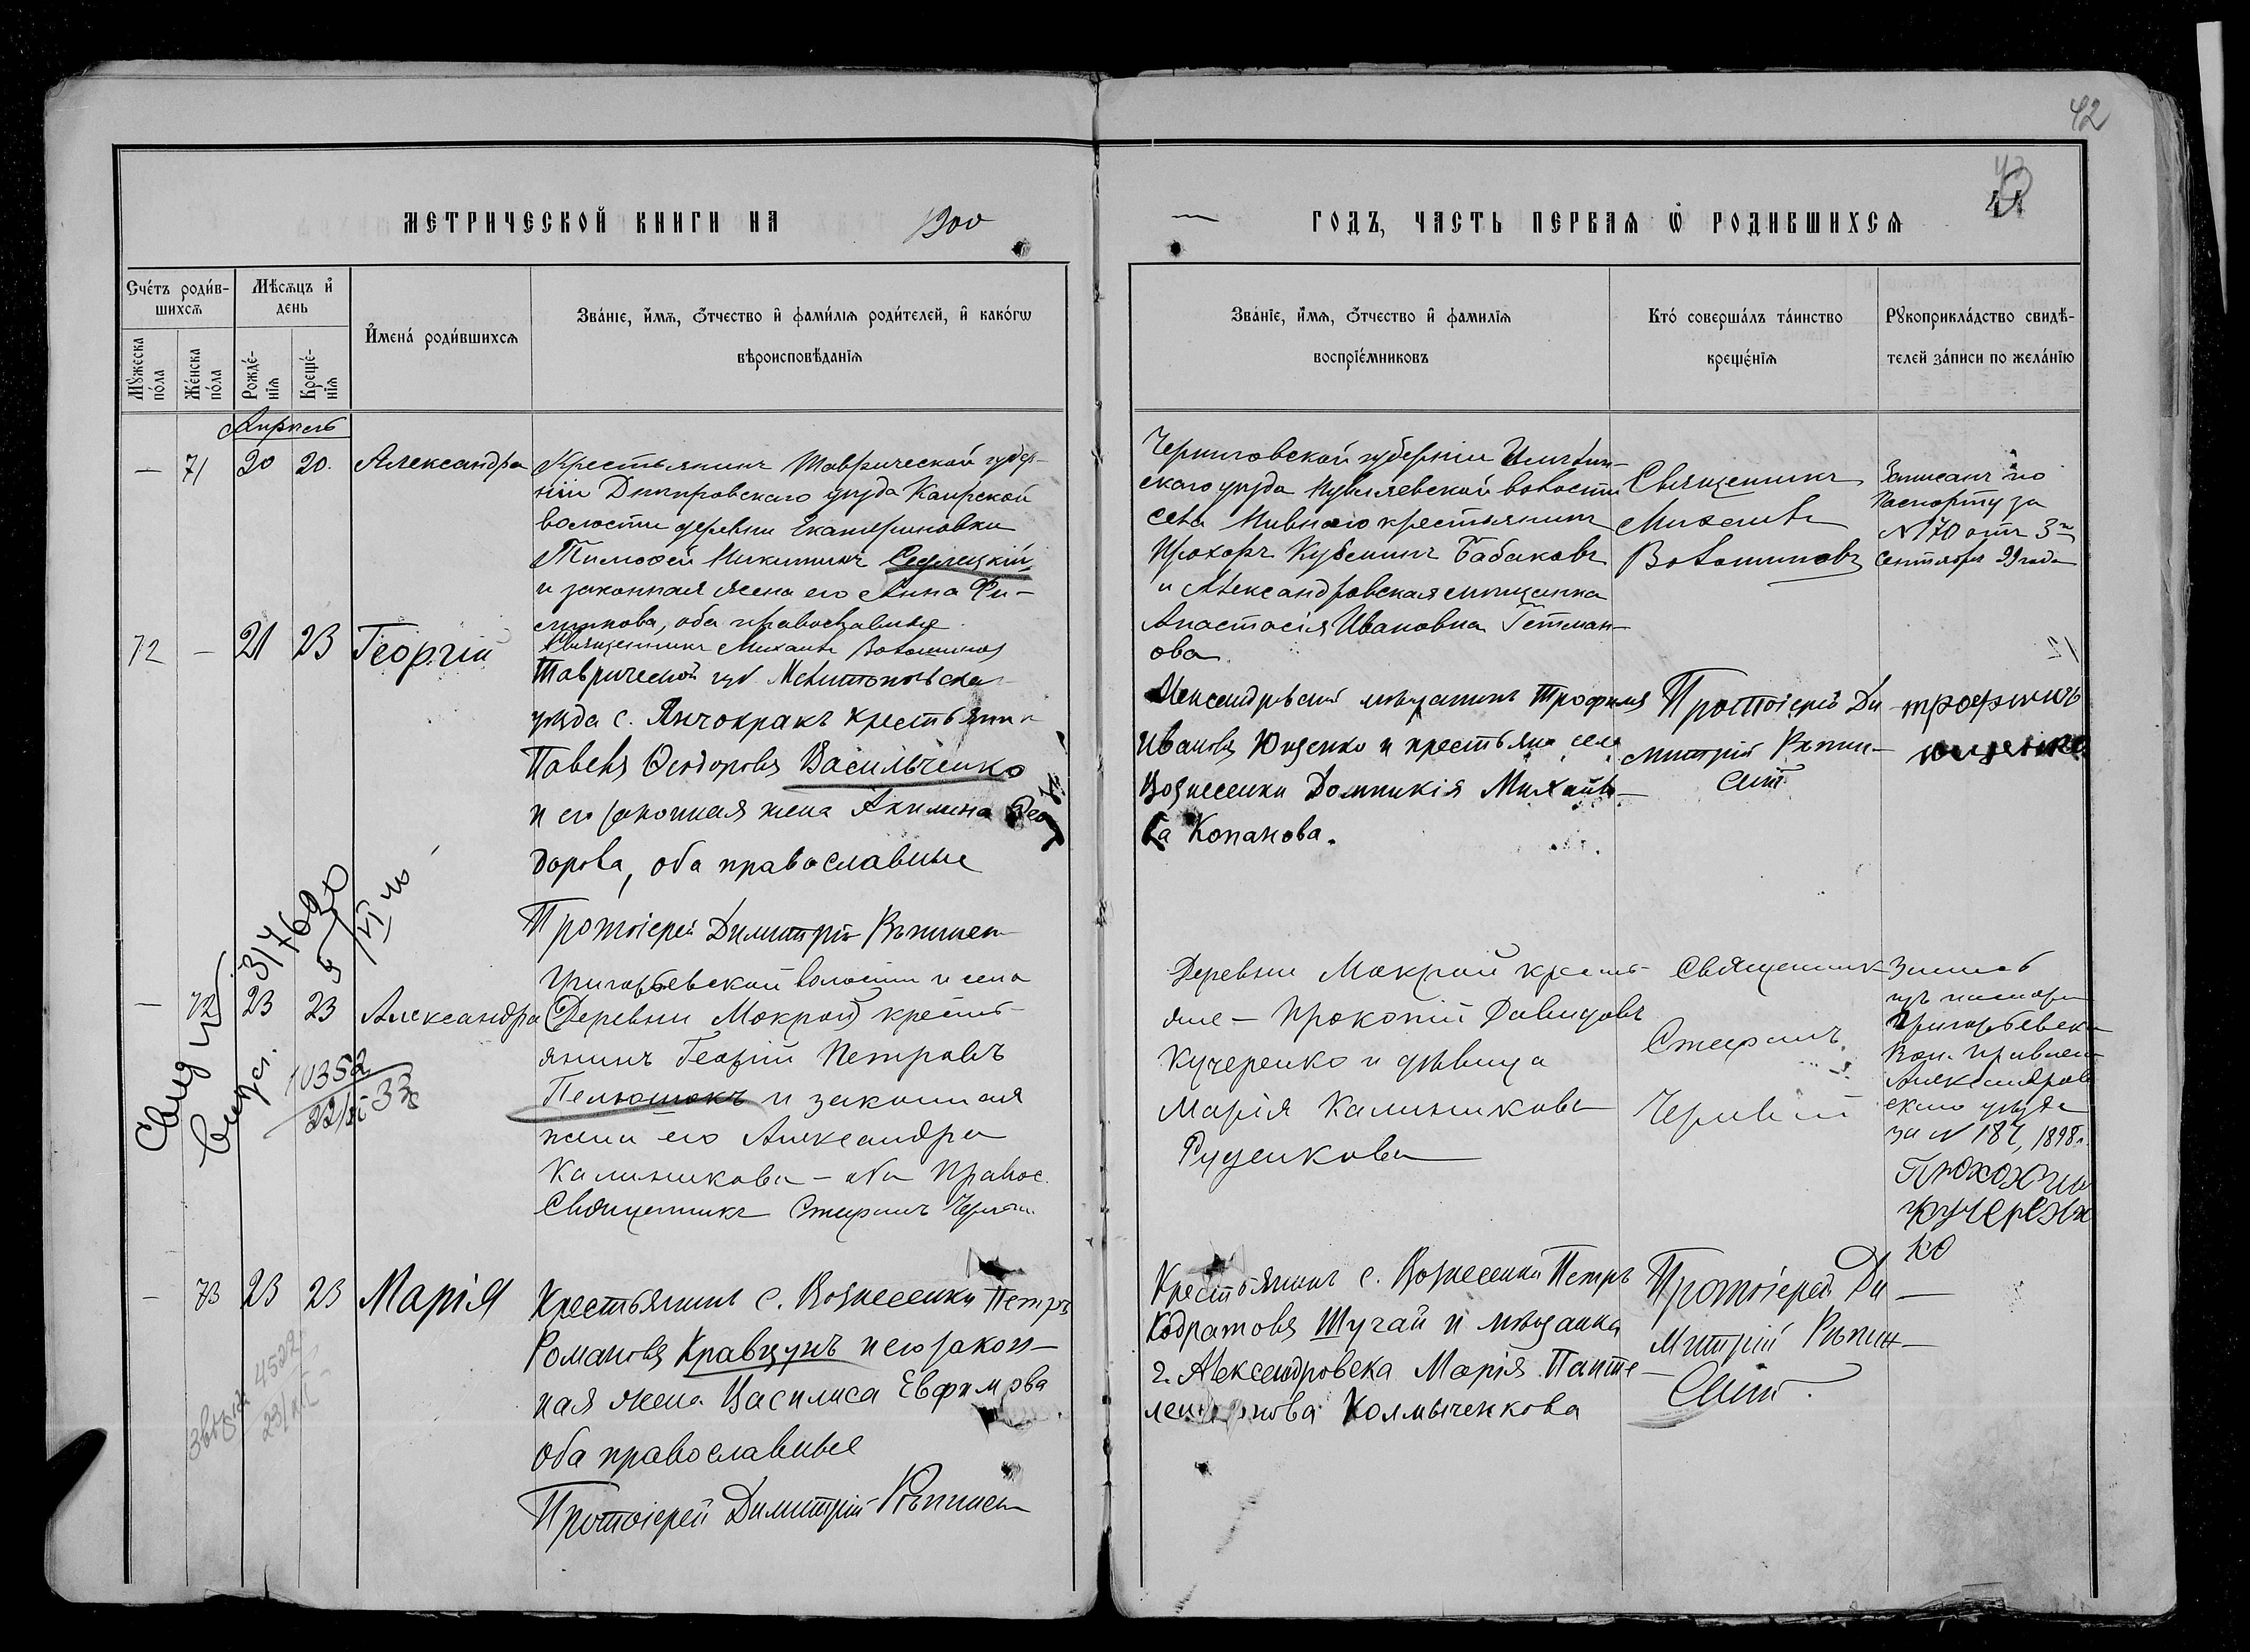 42
МЕТРИЧЕСКОЙ КНИГИ НА 1900
ГОДЪ, ЧАСТЬ ПЕРВАЯ Ѡ РОДИВШИХСЯ
Счетъ родившихся
Мѣсяцъ и день
Мужеска пола
Женска пола
Рожденія
Крещенія
Имена родившихся
Званіе, имя, отчество и фамилія родителей, и какогѡ
вѣроисповѣданія
Званіе, имя, отчество и фамилія
воспріемниковъ
Кто совершалъ таинство
крещенія
Рукоприкладство свидѣ-
телей записи по желанію
Апрель
— 71 20 20. Александра
Крестьянинъ Таврической губер-
ніи Днѣпровскаго уѣзда Каирской
волости деревни Екатериновки
Тимофей Никитинъ Седлецкій
и законная жена его Анна Фи-
липпова, оба православные.
Священникъ Михаилъ Волошиновъ
Черниговской губерніи
скаго уѣзда волости
села Пивнаго крестьянинъ
Прохоръ Бабаковъ
и Александровская мѣщанка
Анастасія Ивановна Гетман-
ова.
Священникъ
Михаилъ
Волошиновъ
Записанъ по
Паспорту за
№ 170 отъ 3го
Сентября 99 года
72 — 21 23 Георгій
Таврической губ. Мелитопольска
уѣзда с. Янчокракъ крестьянин
Павелъ Ѳеодоровъ Васильченко
и его законная жена Акилина Ѳео
дорова, оба православные
Протоіерей Димитрій Рѣпинскій
Александровскій мѣщанинъ Трофимъ
Ивановъ Юценко и крестьянка села
Вознесенки Домникія Михайло-
ва Копанова.
Протоіерей Ди
митрій Рѣпин-
скій
трофимъ
— 72 23 23 Александра
Григорьевской волости и села
(Деревни Мокрой) кресть-
янинъ Георгій Петровъ
Пелюшокъ и законная
жена его Александра
Калиникова — оба Правос.
Священникъ Стефанъ
Деревни Мокрой кресть-
яне — Прокопій Давидовъ
Кучеренко и дѣвица
Марія Калиникова
Руденкова
Священникъ
Стефанъ
Запись
Григорьевск
Вол. Правлен
Александров
скаго уѣзда
за № 187, 1898 г.
Прохожи
кучерен
ко
317620
10352
22/XI 33
— 73 23 23 Марія
Крестьянинъ с. Вознесенки Петръ
Романовъ Кравцунъ и его закон-
ная жена Василиса Евфимова
оба православные
Протоіерей Димитрій Рѣпинскій
Крестьянинъ с. Вознесенки Петръ
Кодратовъ Шугай и мѣщанка
г. Александровска Марія Панте-
леимонова Колмыченкова
Протоіерей Ди —
митрій Рѣпин-
скій.
4522